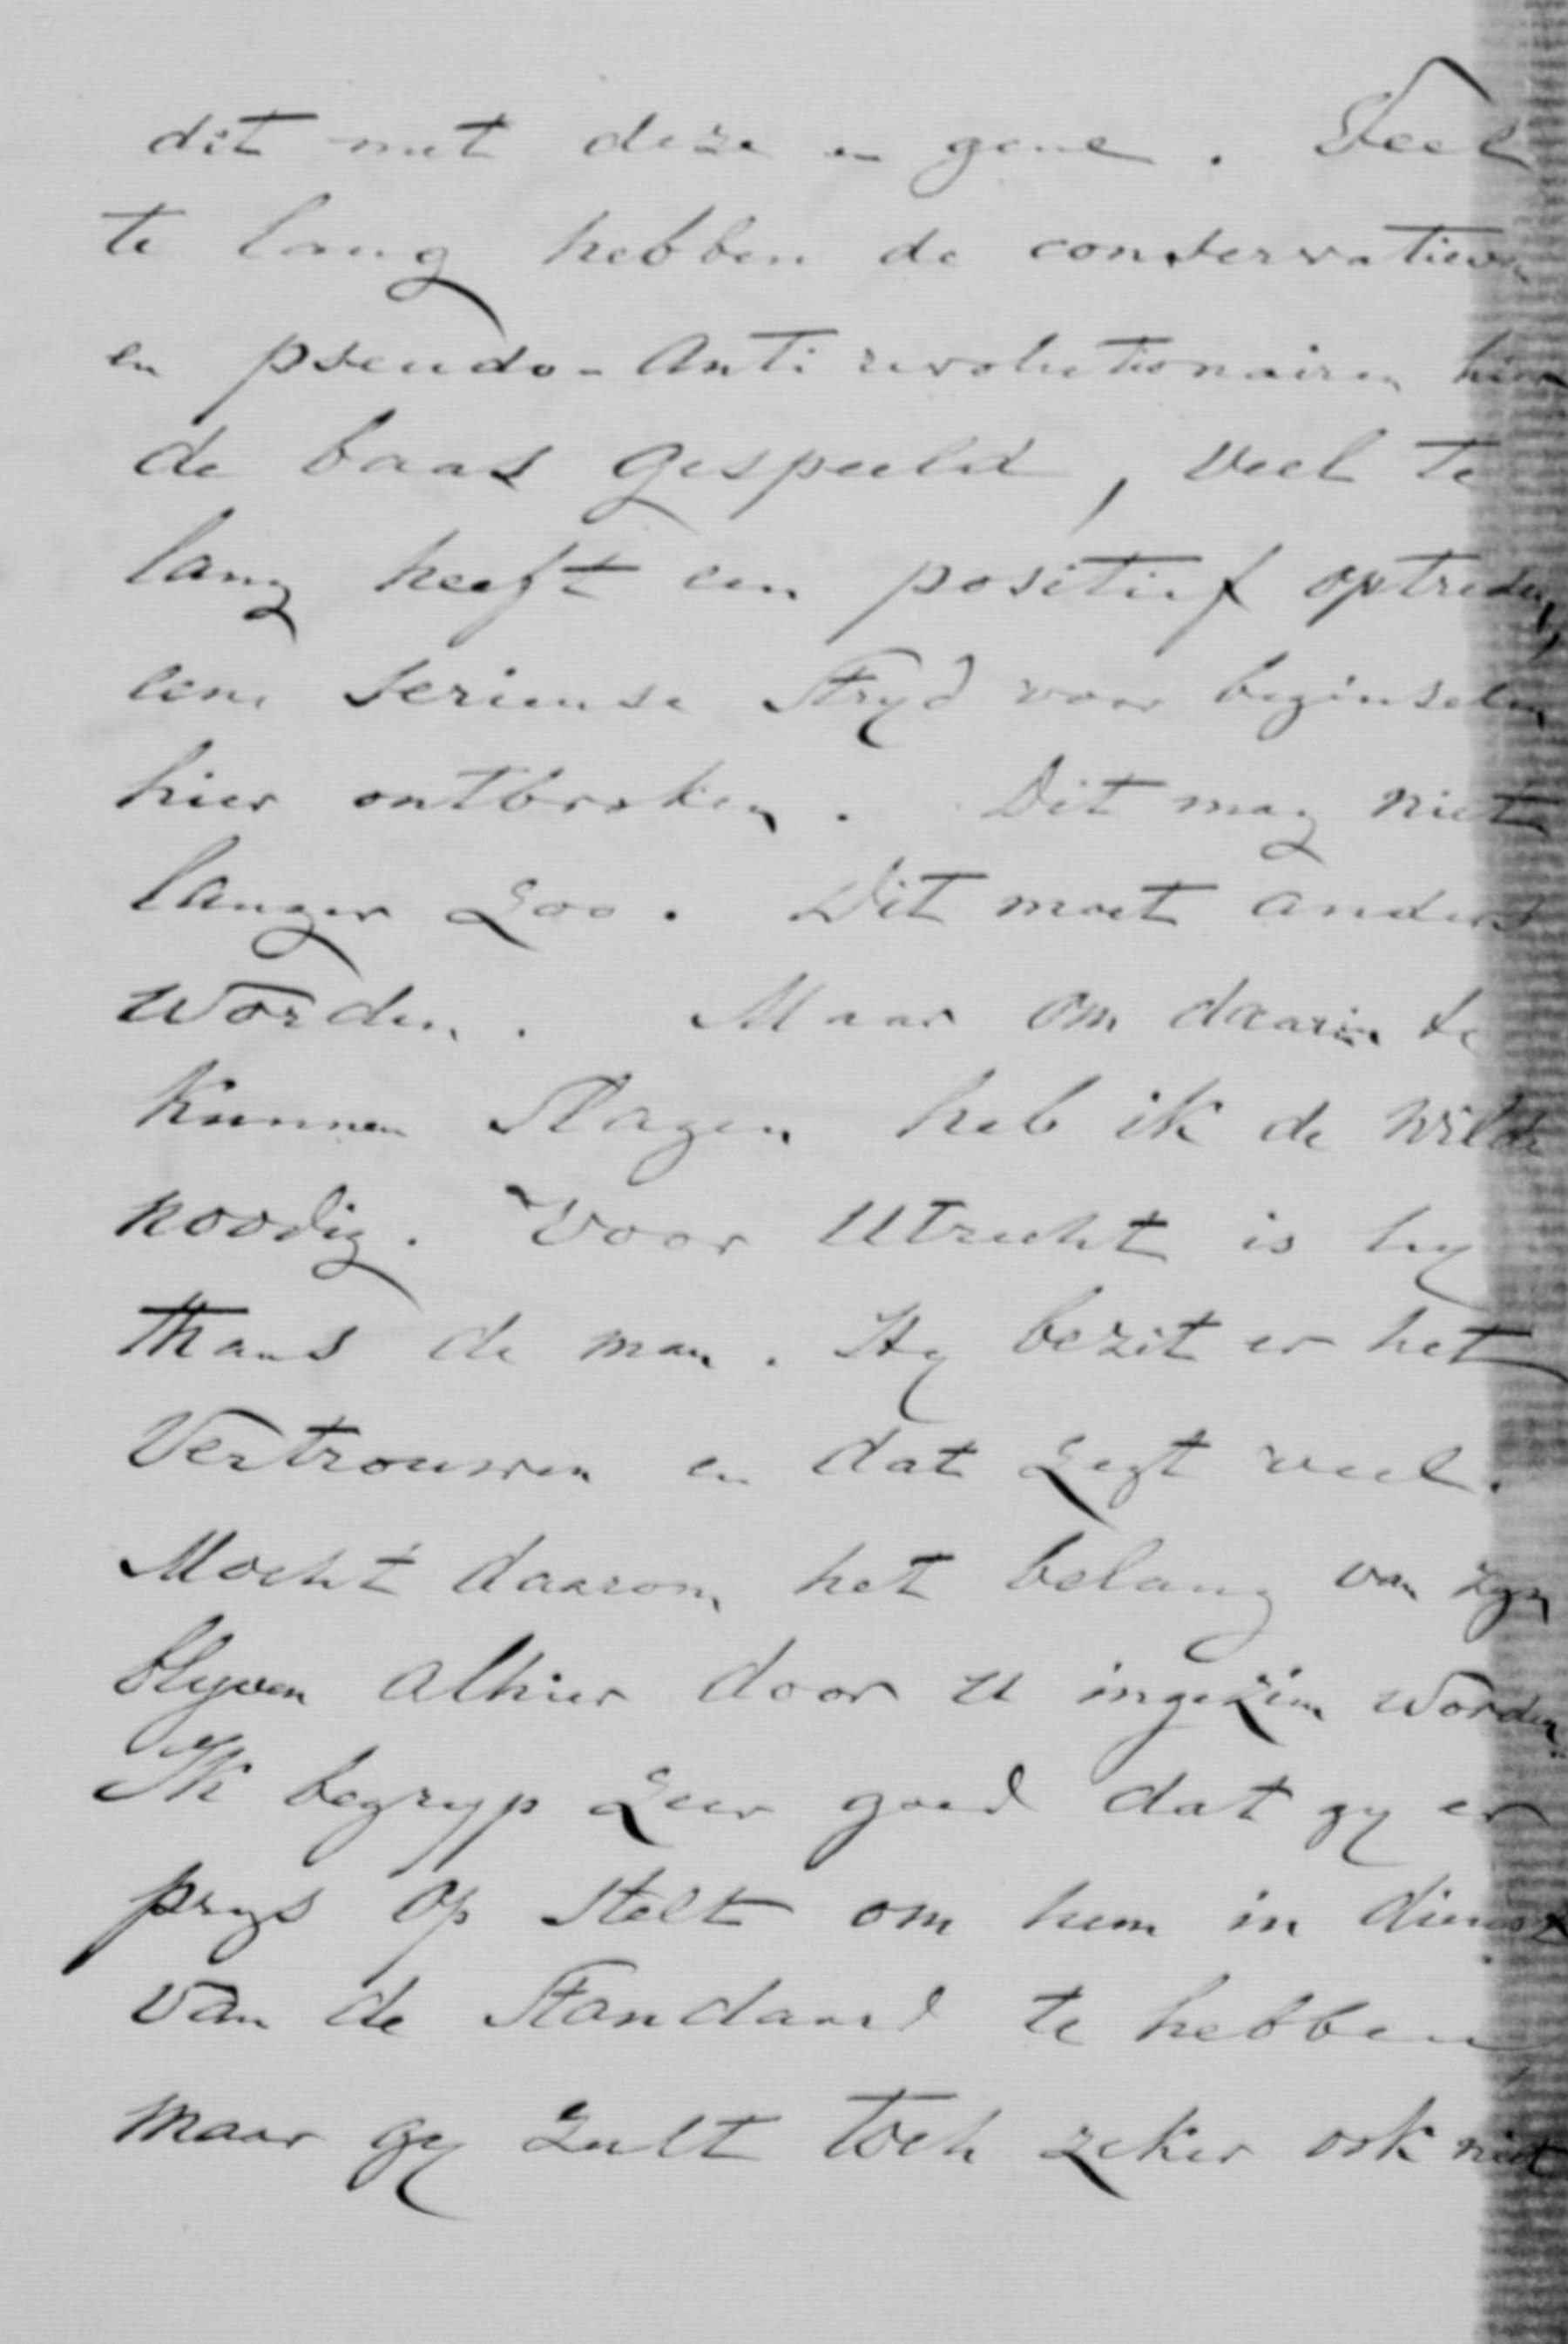 dit met deze en gene. Veel
te lang hebben de conservatieven
en pseudo-Antirevolutionairen hier
de baas gespeeld, veel te
lang heeft een positief optreden,
eene serieuse stryd voor beginselen
hier ontbroken. Dit mag niet
langer zoo. Dit moet anders
worden. Maar om daarin te
kunnen slagen heb ik de Wilde
noodig. Voor Utrecht is hy
thans de man. Hy bezit er het
vertrouwen en dat zegt veel.
Mocht daarom het belang van zyn
blyven alhier door U ingezien worden.
Ik begryp zeer goed dat gy er
prys op stelt om hem in dienst
van de Standaard te hebben,
maar gy zult toch zeker ook niet